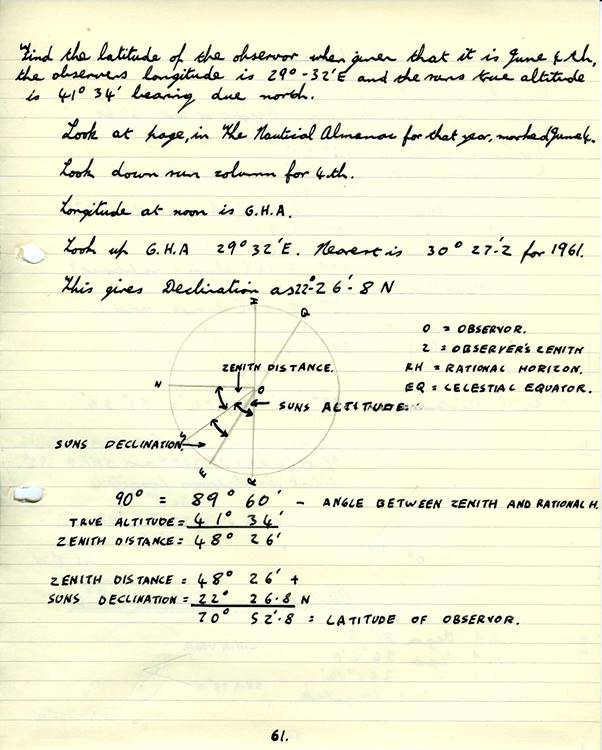 "Find the latitude of the observor when given that it is June 4th,
the observers longitude is 29° - 32'E and the suns true altitude
is 41° 34' bearing due north.
Look at page, in The Nautical Almanac for that year, marked June 4.
Look down sun column for 4th.
Longitude at noon is G.H.A.
Look up G.H.A 29° 32'E. Nearest is 30° 27'.2 for 1961.
This gives Declination as 22°- 26'.8 N
H
Q
O = OBSERVOR.
Z = OBSERVER'S ZENITH
RH = RATIONAL HORIZON.
EQ = CELESTIAL EQUATOR.
ZENITH DISTANCE.
N
O
SUNS ALTITUDE.
SUNS DECLINATION
E
R
90° = 89° 60' - ANGLE BETWEEN ZENITH AND RATIONAL H.
TRUE ALTITUDE = 41° 34'
ZENITH DISTANCE = 48° 26'
ZENITH DISTANCE = 48° 26' +
SUNS DECLINATION = 22° 26.8 N
70° 52'.8 = LATITUDE OF OBSERVOR.
61.